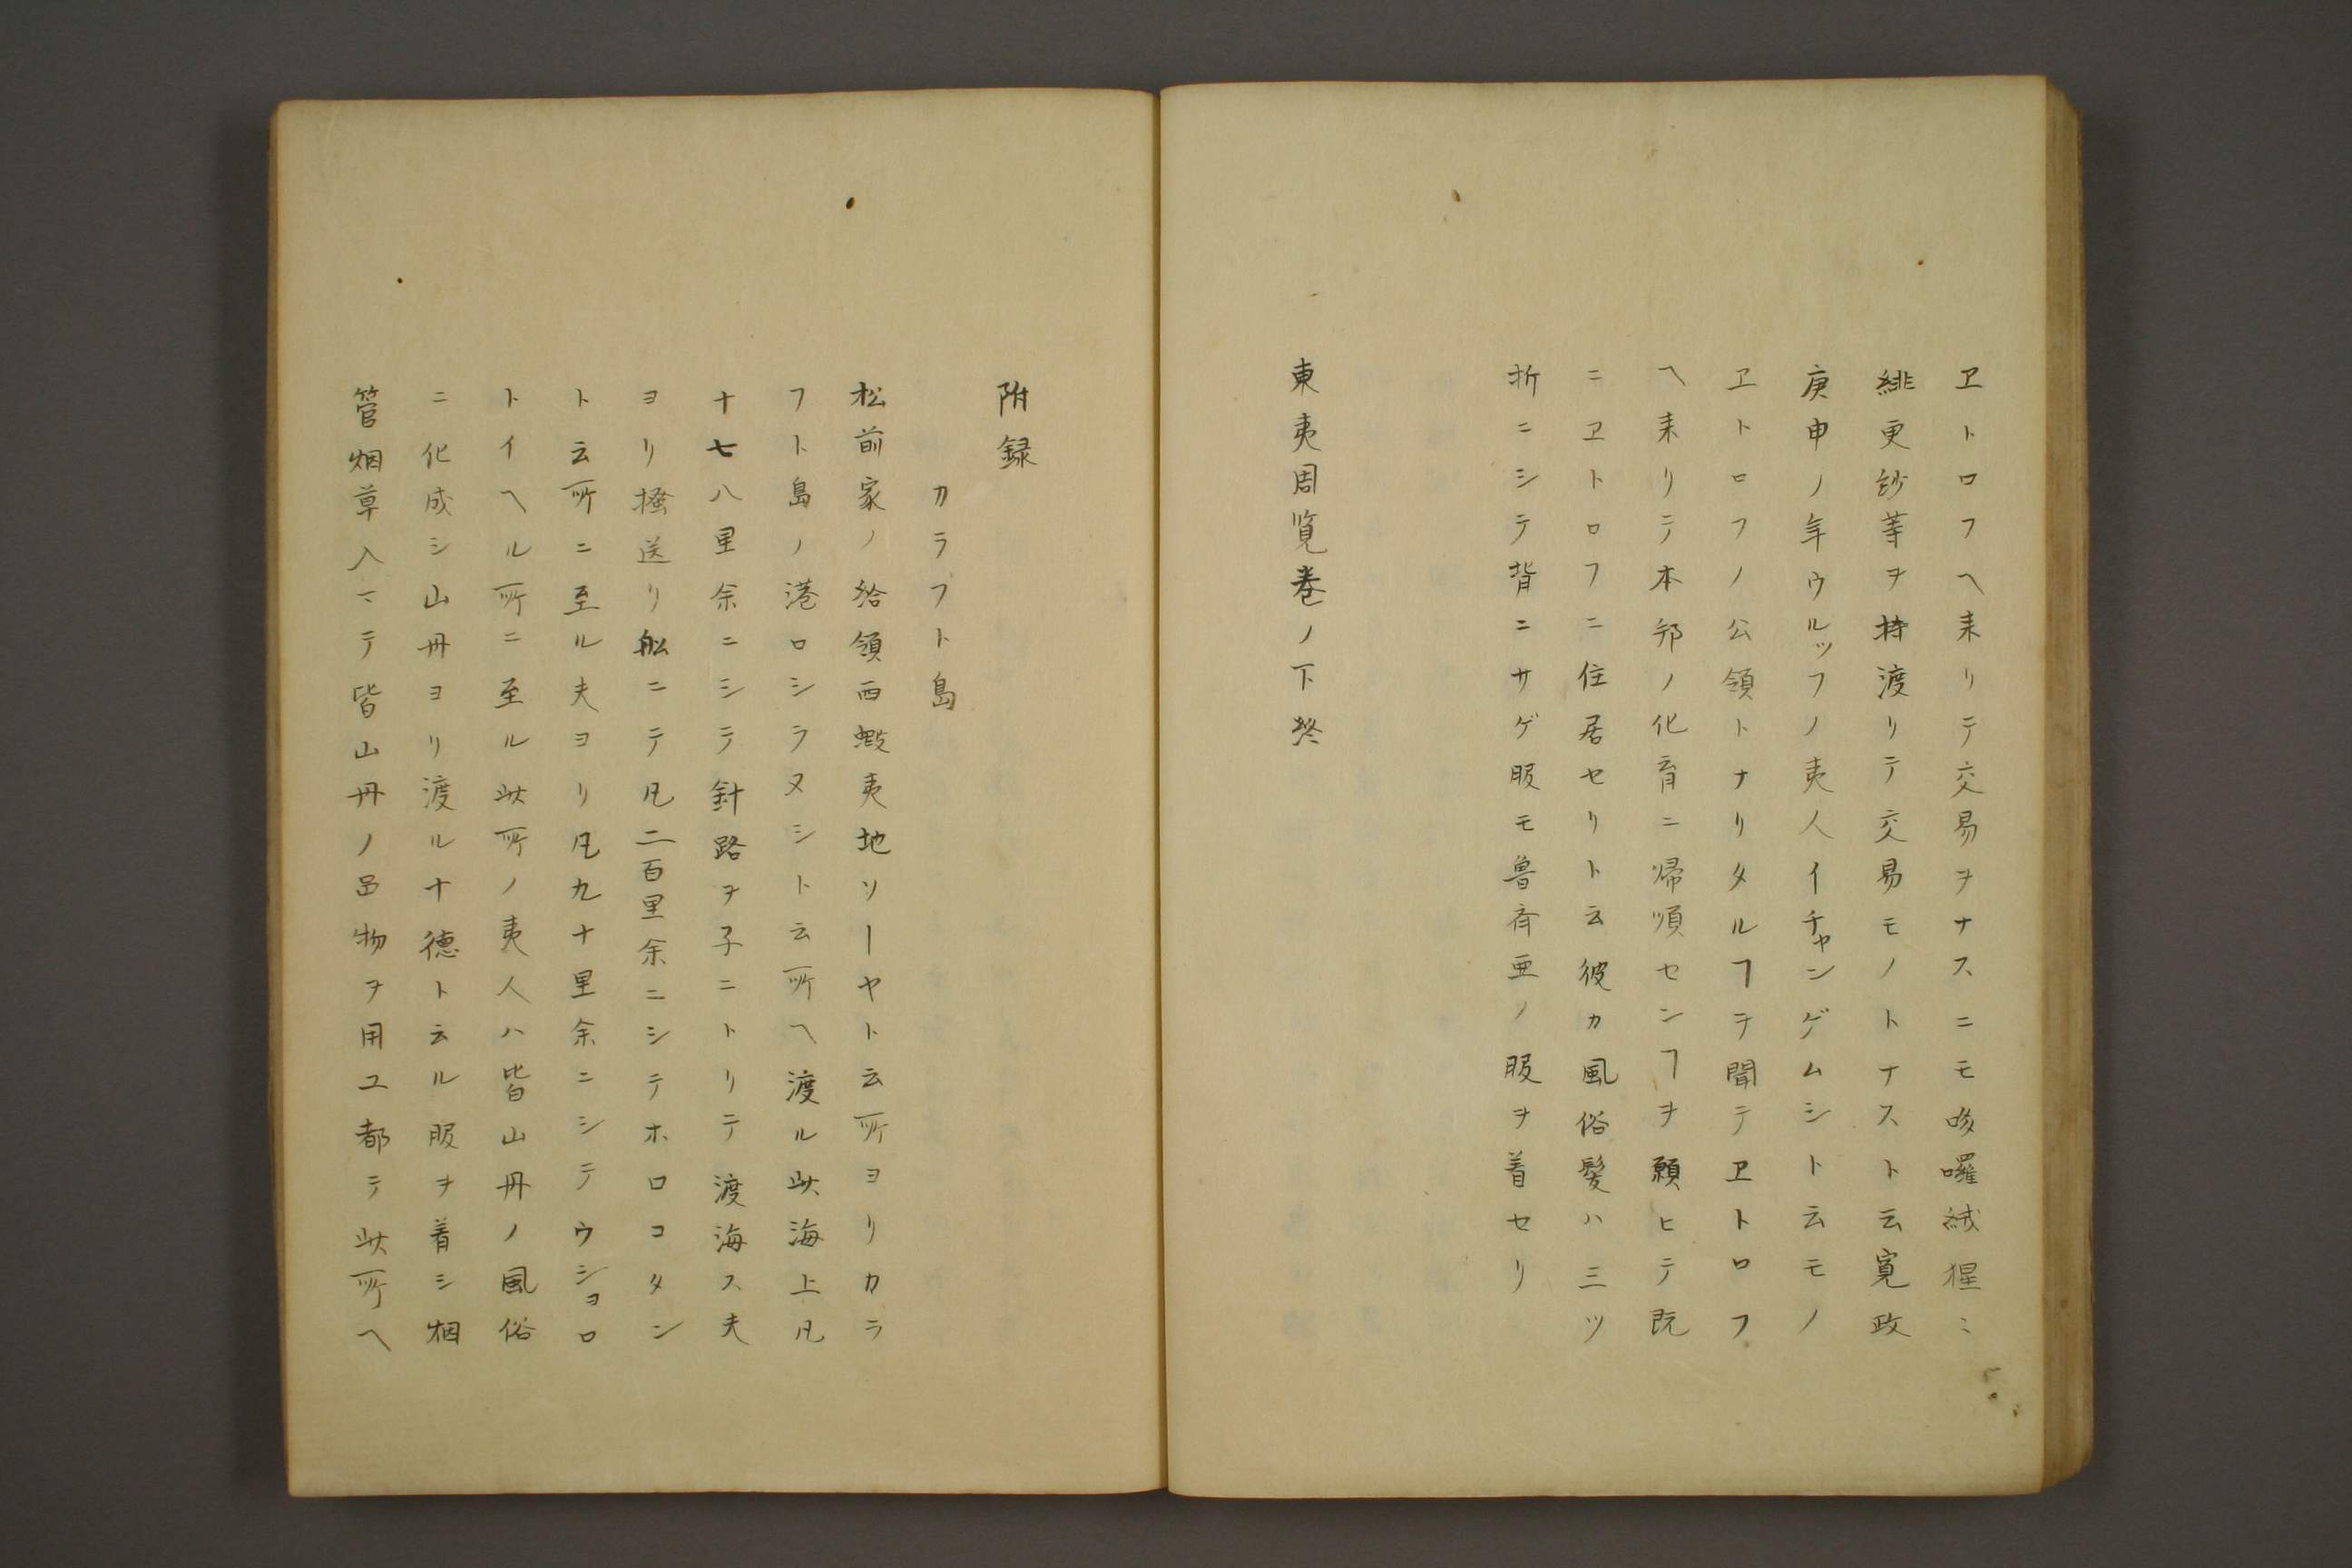 ヱトロフヘ来リテ交易ヲナスニモ咬𠺕絨猩〻
緋更紗䓁ヲ持渡リテ交易モノトナスト云寛政
庚申ノ年ウルッフノ夷人イチャンゲムシト云モノ
ヱトロフノ公領トナリタルヿヲ聞テヱトロフ
ヘ来リテ本邦ノ化育ニ帰順センヿヲ願ヒテ既
ニヱトロフニ住居セリト云彼カ風俗髪ハ三ツ
折ニシテ背ニサゲ服モ魯斉亜ノ服ヲ着セリ
東夷周覧巻ノ下終
附録
カラフト島
松前家ノ給領西蝦夷地ソーヤト云所ヨリカラ
フト島ノ港ロシラヌシト云所ヘ渡ル此海上凡
十七八里余ニシテ針路ヲ子ニトリテ渡海ス夫
ヨリ掻送リ舩ニテ凡二百里余ニシテホロコタン
ト云所ニ至ル夫ヨリ凡九十里余ニシテウショロ
トイヘル所ニ至ル此所ノ夷人ハ皆山丹ノ風俗
ニ化成シ山丹ヨリ渡ル十徳ト云ル服ヲ着シ烟
管烟草入マテ皆山丹ノ品物ヲ用ユ都テ此所ヘ